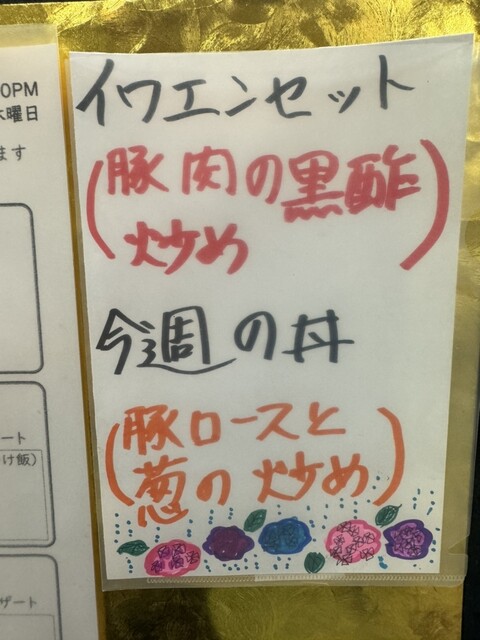 0PM
木曜日
ます
イワエンセット
(豚肉の黒酢
炒め)
今週の丼
(豚ロースと
葱の炒め)
ート
け飯)
ザート